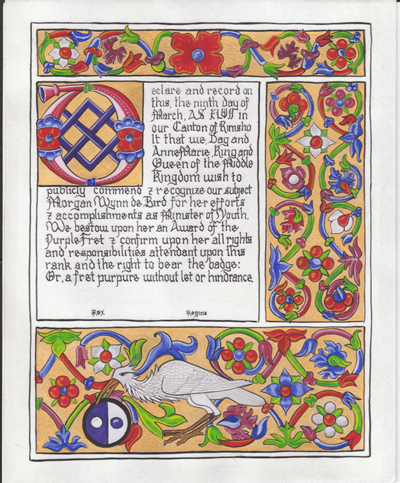 Declare and record on
this, the ninth day of
March, AS XLVII in
our Canton of Rimsho
lt that we, Dag and
AnneMarie, King and
Queen of the Middle
Kingdom wish to
publicly commend & recognize our subject
Morgan Wynn de Bird for her efforts
& accomplishments as Minister of Youth.
We bestow upon her an Award of the
Purple Fret & confirm upon her all rights
and responsibilities attendant upon this
rank and the right to bear the badge:
Or, a fret purpure without let or hindrance.
Rex Regina